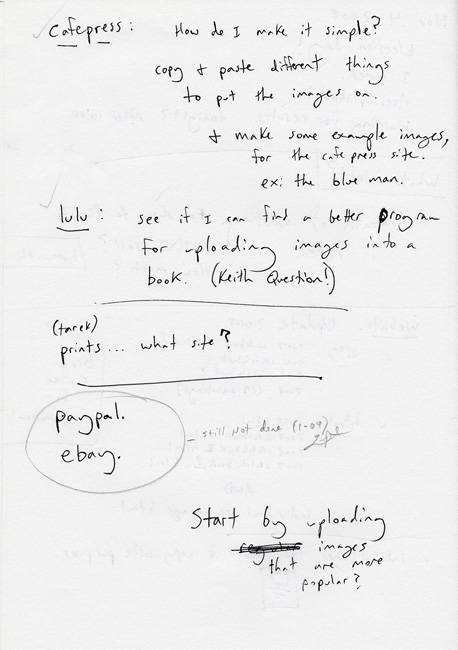 Cafepress: How do I make it simple?
copy + paste different things
to put the images on.
+ make some example images,
for the cafepress site.
ex: the blue man.
lulu: see if I can find a better program
for uploading images into a
book. (Keith Question!)
(tarek)
prints... what site?
paypal.
ebay.
- still not done (1-09)
Start by uploading
regular images
that are more
popular?